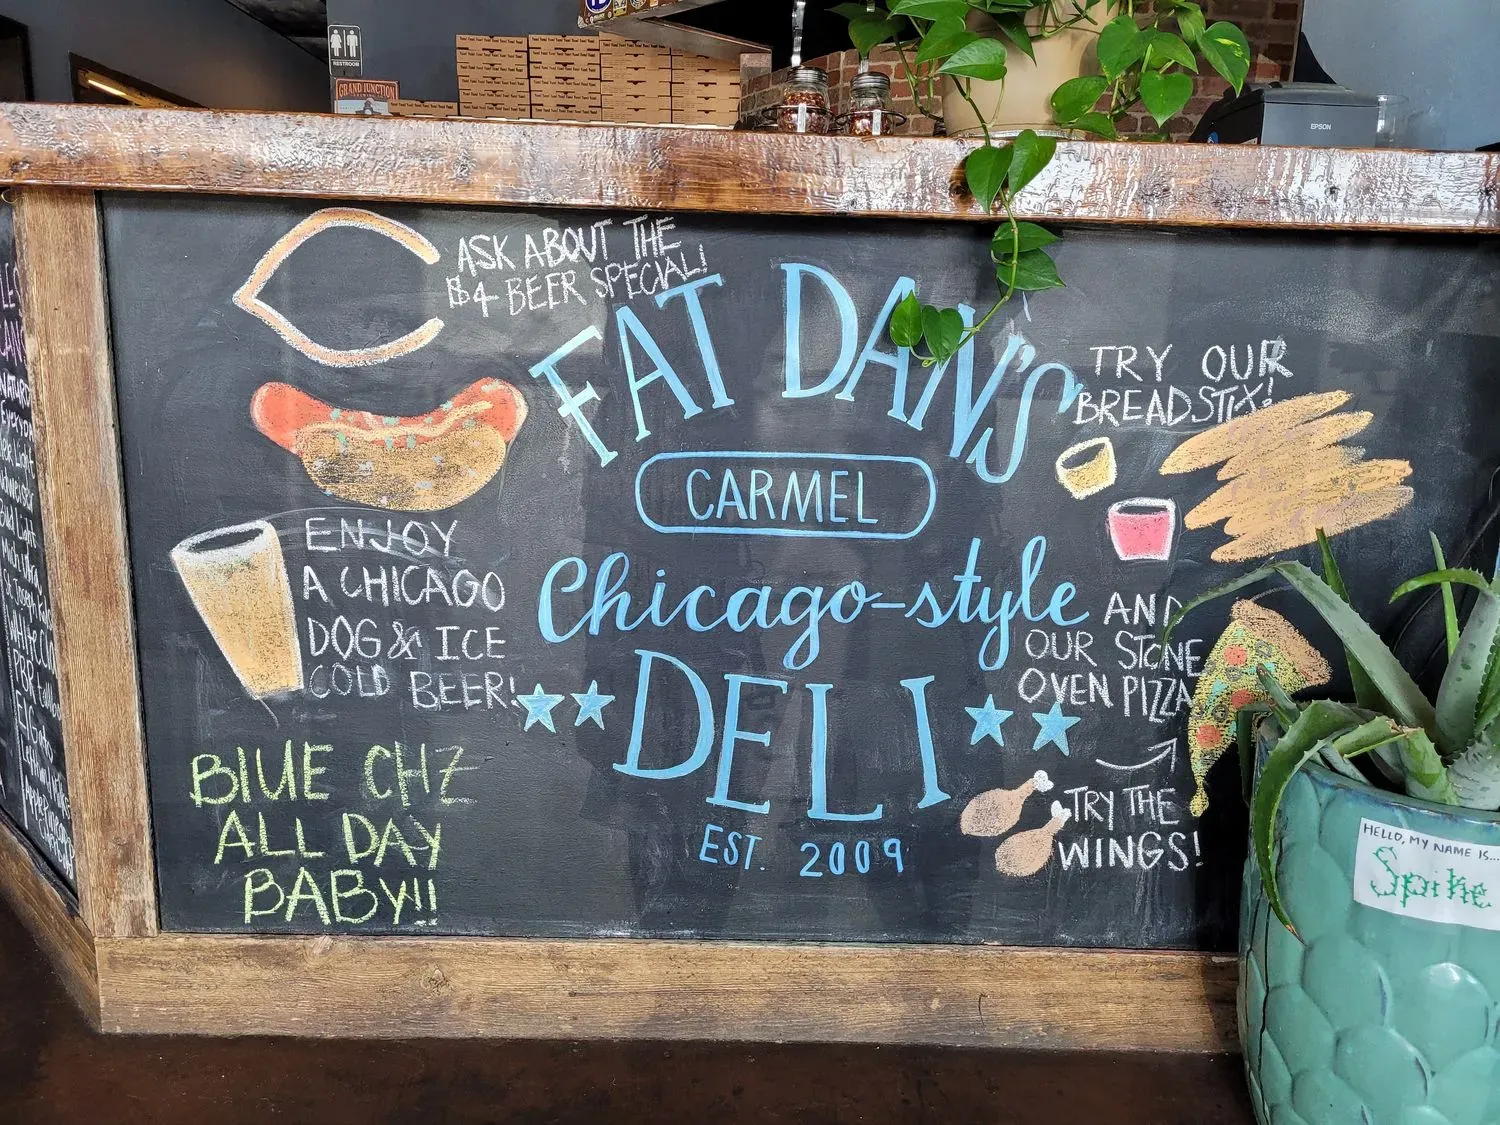 RESTROOM
GRAND JUNCTION
EPSON
ASK ABOUT THE
$4 BEER SPECIAL!
FAT DAN'S
CARMEL
Chicago-style
DELI
EST. 2009
ENJOY
A CHICAGO
DOG & ICE
COLD BEER!
BLUE CHZ
ALL DAY
BABY!!
TRY OUR
BREADSTIX!
AND
OUR STONE
OVEN PIZZA
TRY THE
WINGS!
HELLO, MY NAME IS...
Spike
Light
Bud Light
Mich Ultra
White Claw
PBR